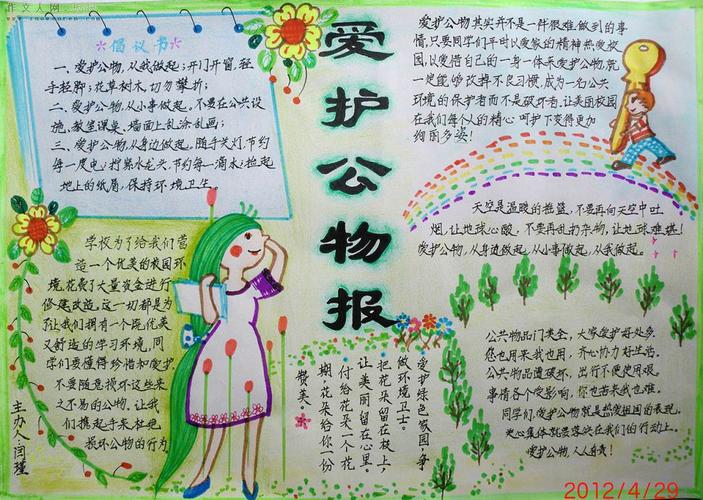 作文人网
倡议书
一、爱护公物，从我做起；开门开窗，轻
手轻脚；花草树木，切勿攀折；
二、爱护公物，从小事做起。不要在公共设
施、教室课桌、墙面上乱涂乱画；
三、爱护公物，从身边做起。随手关灯，节约
每一度电；拧紧水龙头，节约每一滴水；捡起
地上的纸屑，保持环境卫生。
爱护公物报
爱护公物其实并不是一件很难做到的事
情，只要同学们平时以爱家的精神热爱校
园，以爱惜自己的一身一体来爱护公物，就一
定能够改掉不良习惯，成为一名公共
环境的保护者而不是破坏者，让美丽校园
在我们每个人的精心呵护下变得更加
绚丽多姿！
天空是温暖的摇篮，不要再向天空中吐
烟，让地球心酸，不要再乱扔杂物，让地球难堪！
爱护公物，从身边做起，从小事做起，从我做起。
学校为了给我们营
造一个优美的校园环
境，花费了大量资金进行
修建改造，这一切都是为
了让我们拥有一个既优美
又舒适的学习环境，同
学们要懂得珍惜和爱护
不要随意损坏这些来
之不易的公物，让我
们携起手来杜绝
损坏公物的行为
主办人：闫瑾
爱护绿色家园，争
做环境卫士。
把花朵留在枝上，
让美丽留在心里。
付给花朵一个花
期，花朵给你一份
赞美。
公共物品门类全，大家爱护好处多。
您也用来我也用，齐心协力好生活。
公共物品遭破坏，出行不便使用艰。
事情各个受影响，你也苦来我也难。
同学们，爱护公物就是热爱祖国的表现，
关心集体就要落实在我们的行动上。
爱护公物，人人有责！
2012/4/29